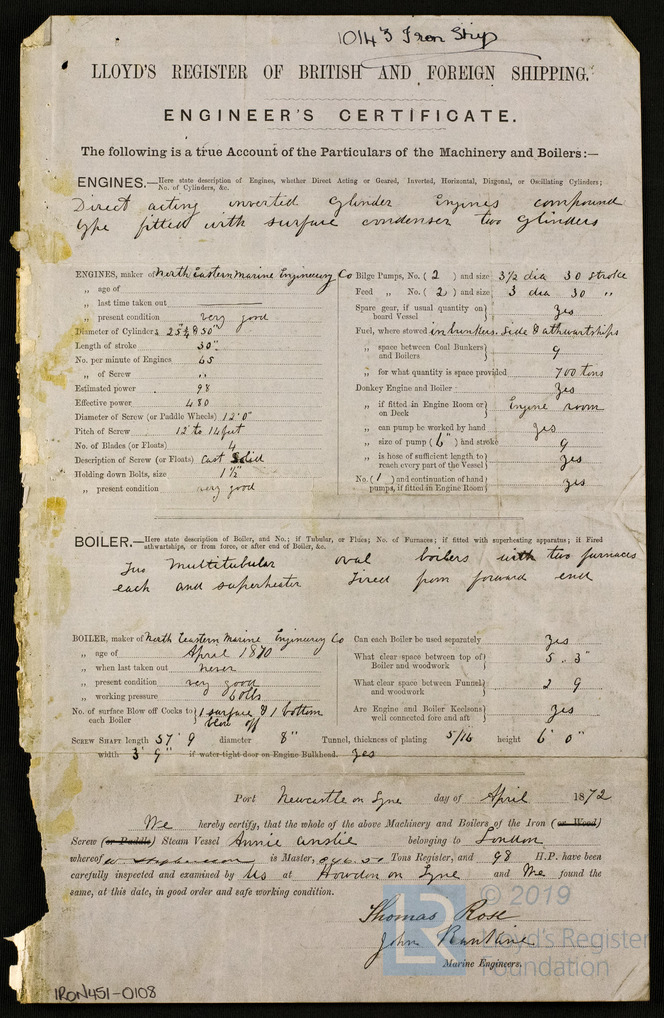 10143 Iron Ship
LLOYD'S REGISTER OF BRITISH AND FOREIGN SHIPPING.
ENGINEER'S CERTIFICATE.
The following is a true Account of the Particulars of the Machinery and Boilers:—
ENGINES.—Here state description of Engines, whether Direct Acting or Geared, Inverted, Horizontal, Diagonal, or Oscillating Cylinders;
No. of Cylinders, &c.
Direct acting inverted Cylinder Engines compound
type fitted with surface condenser two Cylinders
ENGINES, maker of North Eastern Marine Engineering Co
„ age of
„ last time taken out
„ present condition very good
Diameter of Cylinders 25 & 50"
Length of stroke 30"
No. per minute of Engines 65
„ of Screw „
Estimated power 98
Effective power 480
Diameter of Screw (or Paddle Wheels) 12'0"
Pitch of Screw 12 to 14 feet
No. of Blades (or Floats) 4
Description of Screw (or Floats) Cast Solid
Holding down Bolts, size 1 1/2"
„ present condition very good
Bilge Pumps, No. ( 2 ) and size 3 1/2 dia 30 stroke
Feed „ No. ( 2 ) and size 3 dia 30 „
Spare gear, if usual quantity on
board Vessel yes
Fuel, where stowed in bunkers. Side & athwartships
„ space between Coal Bunkers
and Boilers 9
„ for what quantity is space provided 700 tons
Donkey Engine and Boiler yes
„ if fitted in Engine Room or
on Deck Engine room
„ can pump be worked by hand yes
„ size of pump ( 6" ) and stroke 9
„ is hose of sufficient length to
reach every part of the Vessel yes
No. ( 1 ) and continuation of hand
pumps, if fitted in Engine Room yes
BOILER.—Here state description of Boiler, and No.; if Tubular, or Flues; No. of Furnaces; if fitted with superheating apparatus; if Fired
athwartships, or from fore, or after end of Boiler, &c.
Two Multitubular oval boilers with two furnaces
each and superheater Fired from forward end
BOILER, maker of North Eastern Marine Engineering Co
„ age of April 1870
„ when last taken out never
„ present condition very good
„ working pressure 60 lbs
No. of surface Blow off Cocks to
each Boiler 1 surface & 1 bottom
blow off
Can each Boiler be used separately yes
What clear space between top of
Boiler and woodwork 5 „ 3"
What clear space between Funnel
and woodwork 2 9
Are Engine and Boiler Keelsons
well connected fore and aft yes
SCREW SHAFT length 57' 9 diameter 8" Tunnel, thickness of plating 5/16 height 6' 0"
width 3' 9" if water-tight door on Engine Bulkhead. yes
Port Newcastle on Tyne day of April 1872
We hereby certify, that the whole of the above Machinery and Boilers of the Iron (or Wood)
Screw (or Paddle) Steam Vessel Annie Ainslie belonging to London
whereof W. Stephenson is Master, Tons Register, and 98 H.P. have been
carefully inspected and examined by us at Howdon on Tyne and We found the
same, at this date, in good order and safe working condition.
Thomas Rose
John Rankine
Marine Engineers.
© 2019
LR
Lloyd's Register
Foundation
IRON451-0108